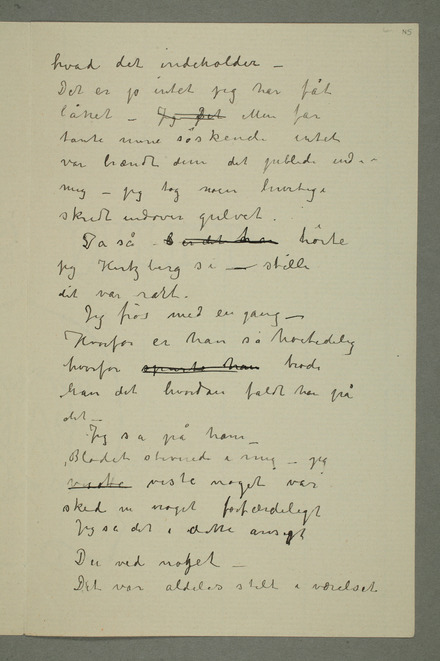 hvad det indeholder –
Det er jo intet jeg har fåt
låttet – Jeg Det Men far
tante mine söskende intet
var hændt dem det jublede ind
mig – jeg tog noen hurtige
skridt indover gulvet.
Da så hörte
jeg Hertzberg si – stille
det var rart.
Jeg frös med en gang –
Hvorfor er han så höitidelig
hvorfor spurte han brød
han det hvordan faldt han på
det –
Jeg sa på ham –
Blodet stivned i mig – jeg
visste viste noget var
sked nu noget forfærdeligt
Jeg så det i dette ansigt
Du ved noget –
Det var aldeles stilt i værelset
N5